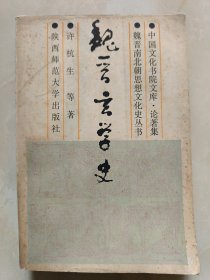 中国文化书院文库·论著集
魏晋南北朝思想文化史丛书
魏晋玄学史
●许抗生 等 著
●陕西师范大学出版社